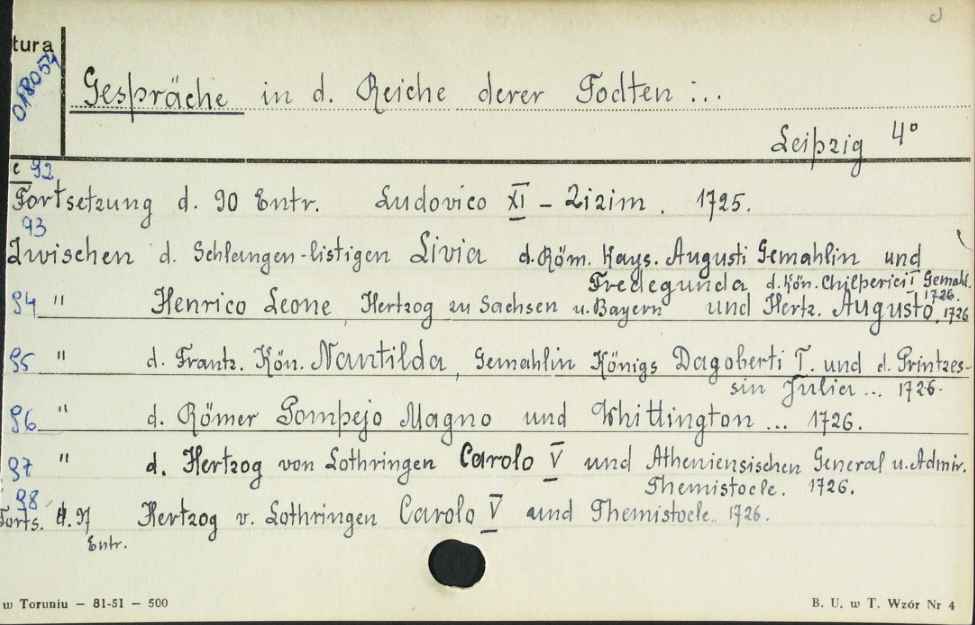 tura
018054
Gespräche in d. Reiche derer Todten :..
Leipzig 4°
c 92
Fortsetzung d. 90 Entr. Ludovico XI - Zizim. 1725.
93
Zwischen d. Schlangen-listigen Livia d. Röm. Kays. Augusti Gemahlin und
Fredegunda d. Kön. Chilperici I Gemahl. 1726.
94 " Henrico Leone, Hertzog zu Sachsen u. Bayern und Hertz. Augusto. 1726
95 " d. Frantz. Kön. Nantilda, Gemahlin Königs Dagoberti I. und d. Printzes-
sin Julia ... 1726.
96 " d. Römer Pompejo Magno und Whittington ... 1726.
97 " d. Hertzog von Lothringen Carolo V und Atheniensischen General u. Admir.
Themistocle. 1726.
98
Forts. d. 97 Hertzog v. Lothringen Carolo V und Themistocle.. 1726.
Entr.
w Toruniu — 81-51 — 500
B. U. w T. Wzór Nr 4